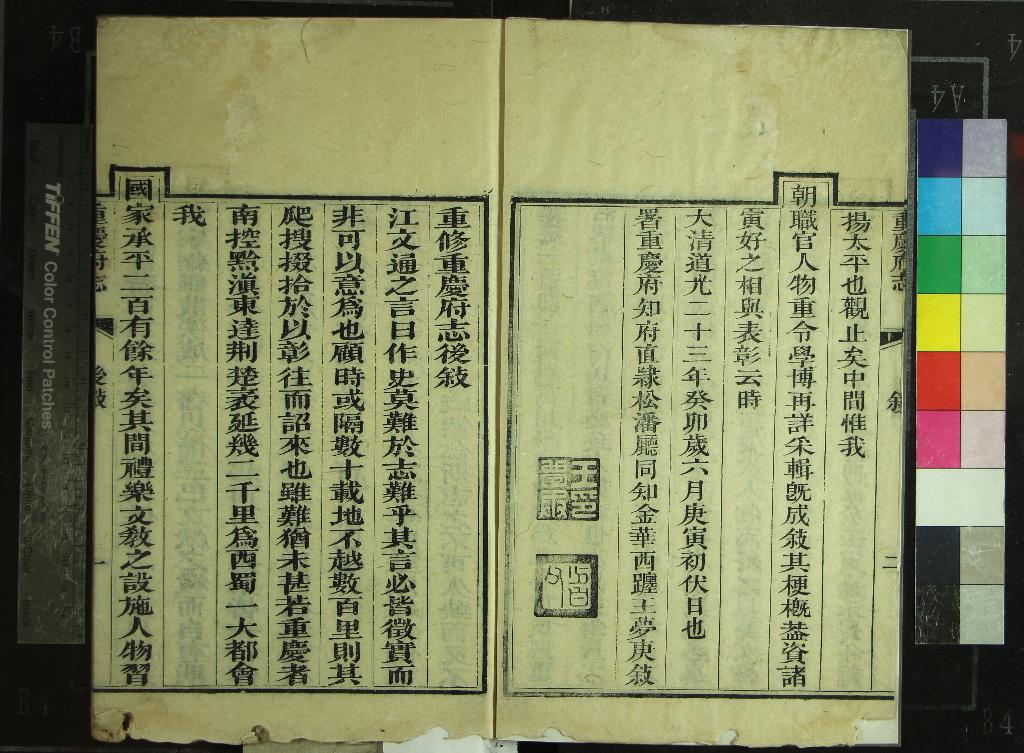 重慶府志
敘
二
揚太平也觀止矣中間惟我
朝職官人物重令學博再詳采輯既成敘其梗概葢資諸
寅好之相與表彰云時
大清道光二十三年癸卯歲六月庚寅初伏日也
署重慶府知府直隸松潘廳同知金華西躔王夢庚敘
重修重慶府志後敘
江文通之言曰作史莫難於志難乎其言必皆徵實而
非可以意為也顧時或隔數十載地不越數百里則其
爬搜掇拾於以彰往而詔來也雖難猶未甚若重慶者
南控黔滇東達荆楚袤延幾二千里為西蜀一大都會
我
國家承平二百有餘年矣其間禮樂文教之設施人物習
重慶府志
後敘
一
TIFFEN Color Control Patches
A4
B4
B4
B4